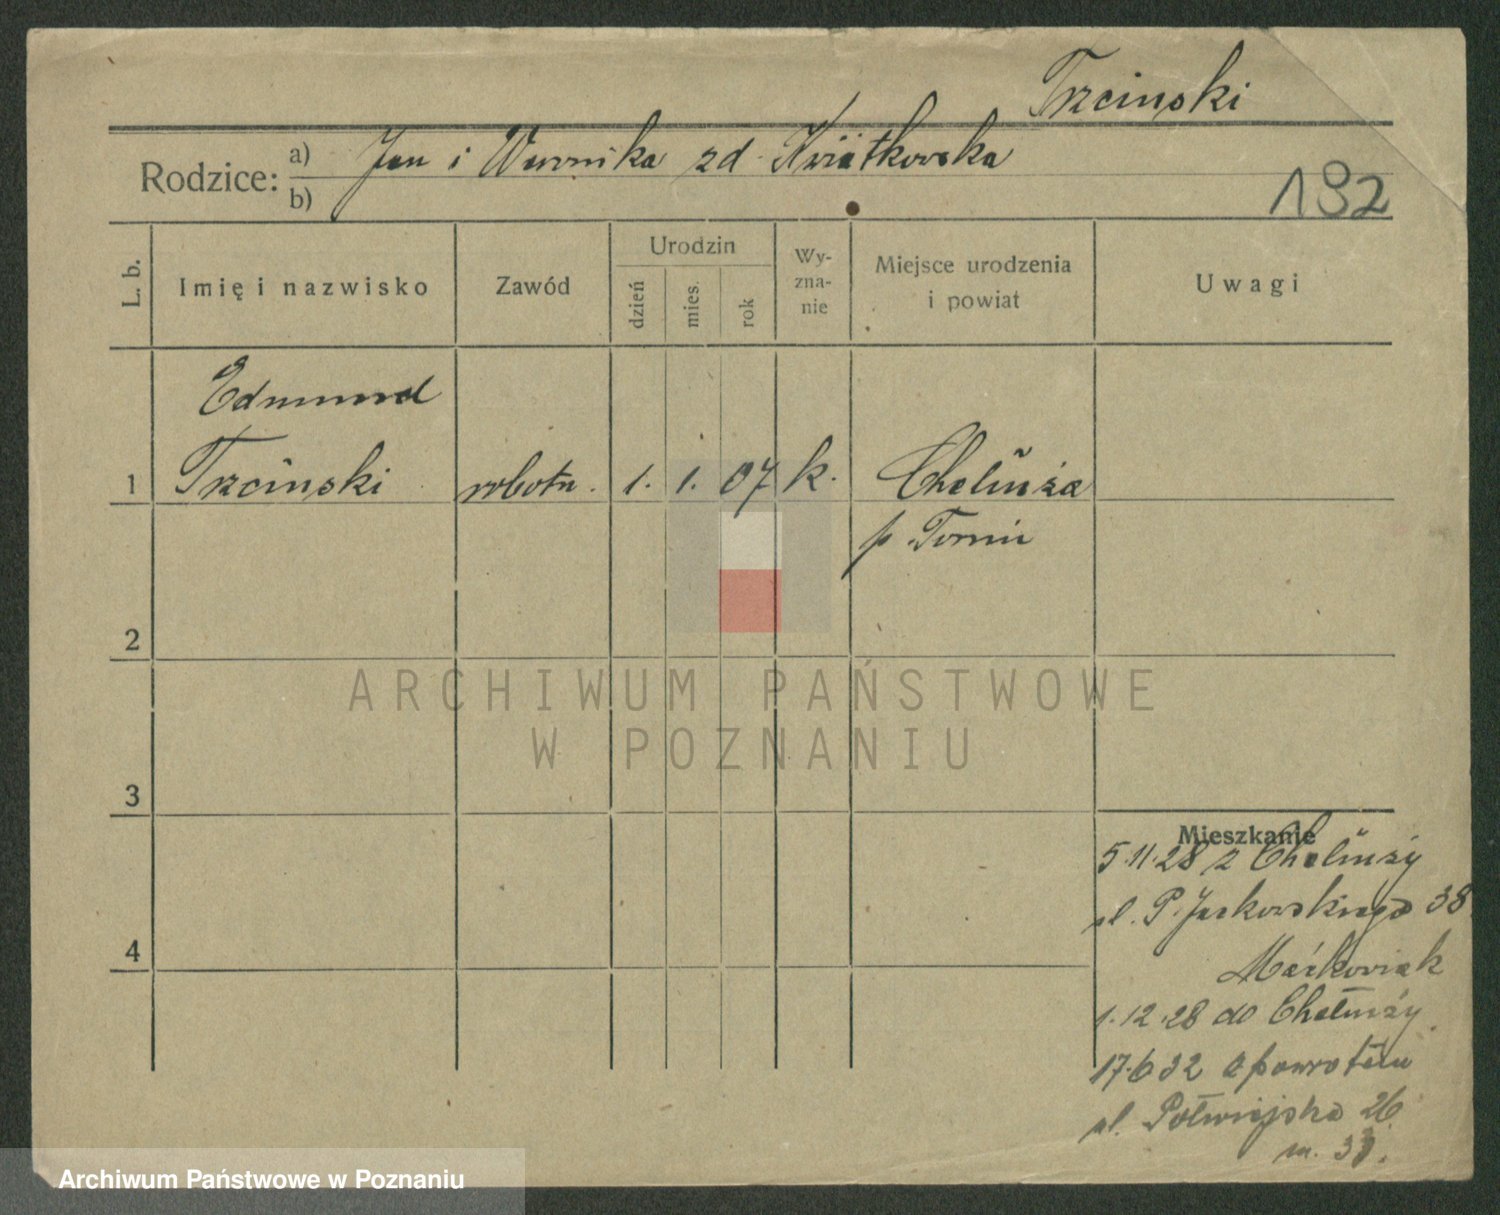 Trzcinski
Rodzice: a) Jan i Weronika zd. Kwiatkowska
b)
192
L. b.
Imię i nazwisko
Zawód
Urodzin
dzień
mies.
rok
Wy-
zna-
nie
Miejsce urodzenia
i powiat
Uwagi
Edmund
1 Trzcinski robotn. 1. 1. 07 k. Chełmża
p. Toruń
2
ARCHIWUM PAŃSTWOWE
W POZNANIU
3
Mieszkanie
5.11.28 z Chełmży
ul. P. Jackowskiego 38
Maćkowiak
4
1.12.28 do Chełmży
17.6 32 z powrotem
ul. Półwiejska 26
m. 33.
Archiwum Państwowe w Poznaniu